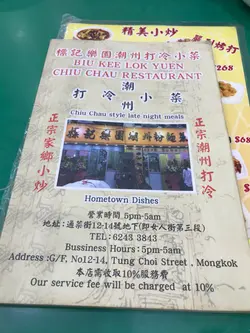 精美小炒
$268
標記樂園潮州打冷小菜
BIU KEE LOK YUEN
CHIU CHAU RESTAURANT
潮州
打冷小菜
Chiu Chau style late night meals
正宗家鄉小炒
正宗潮州打冷
Hometown Dishes
營業時間 5pm-5am
地址:通菜街12-14號地下(即女人街第三段)
TEL:6243 3843
Bussiness Hours:5pm-5am
Address:G/F, No12-14, Tung Choi Street , Mongkok
本店需收取10%服務費
Our service fee will be charged at 10%